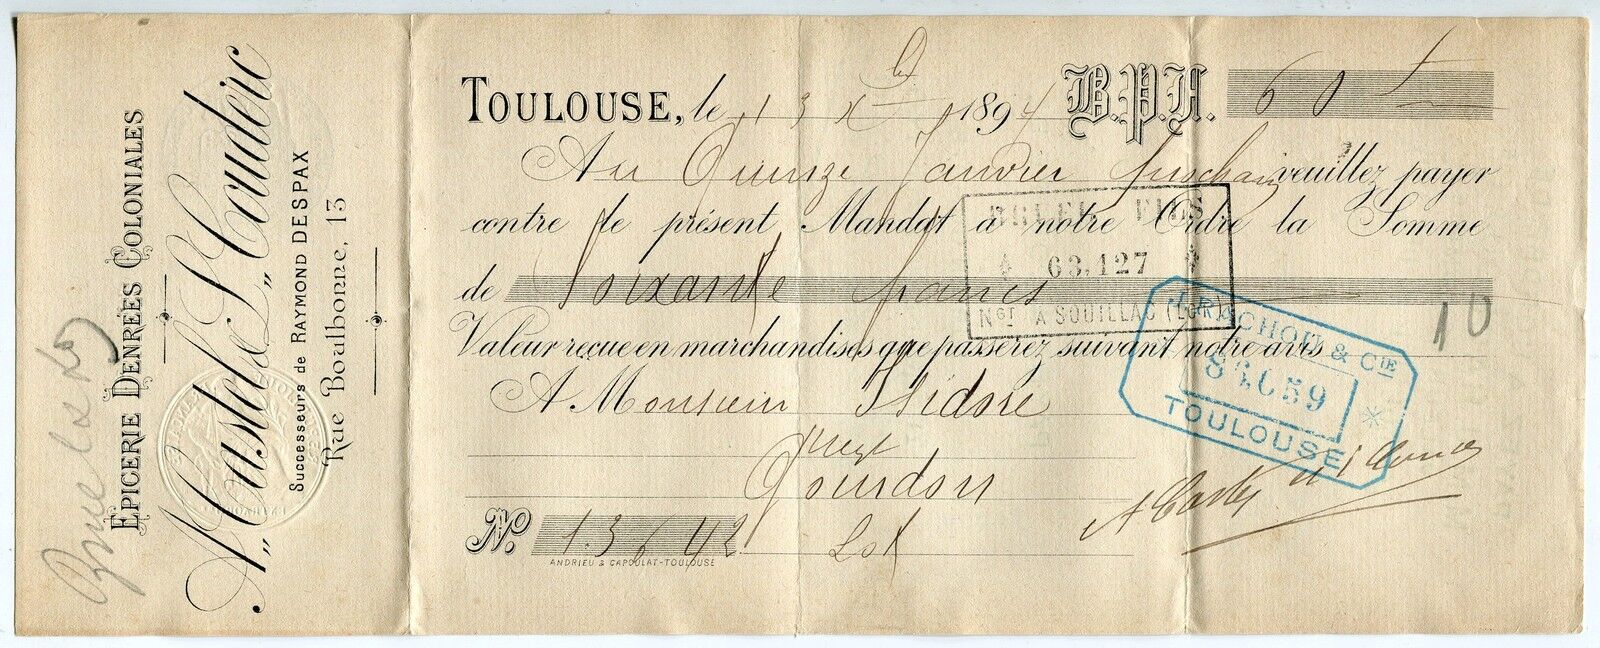 EPICERIE DENRÉES COLONIALES
A. Castel & L. Couderc
Successeurs de RAYMOND DESPAX
Rue Boulbonne, 13
TOULOUSE, le 13 Xbre 1894 B.P.F. 60 f
Au Quinze Janvier prochain veuillez payer
contre le présent Mandat à notre Ordre la Somme
de Soixante francs
Valeur reçue en marchandises que passerez suivant notre avis
A Monsieur Isidore
Gourdon
Lot
No. 13642
ANDRIEU & CAPOULAT-TOULOUSE
63,127
Ngt A SOUILLAC (Lot)
& CIE
TOULOUSE
10